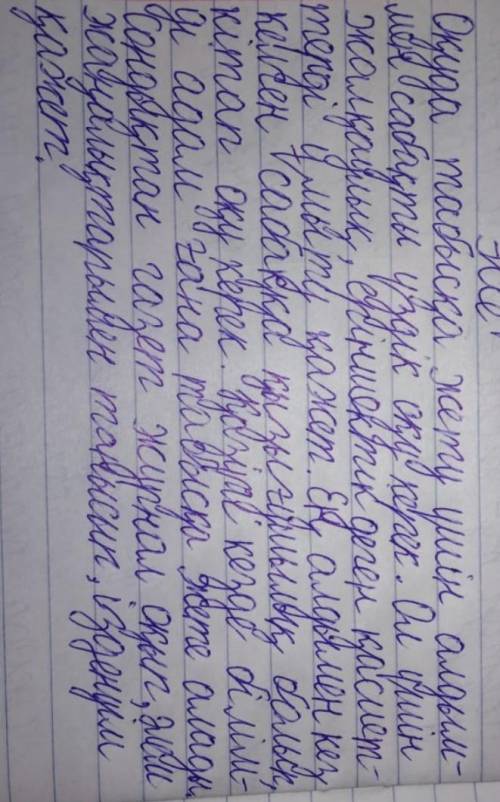 Оқуда табысқа жету үшін алдым-
мен сабақты үздік оқу керек. Ол үшін
жалқаулық, еріншектік деген қасиет-
терді ұмыту қажет. Ең алдымен кез
келген сабаққа қызығушылық болып,
кітап оқу керек. Қазіргі кезде білім-
ді адам ғана табысқа жете алады.
Сондықтан газет журнал оқып, әлем
жаңалықтарымен танысып, ізденуім
қажет.